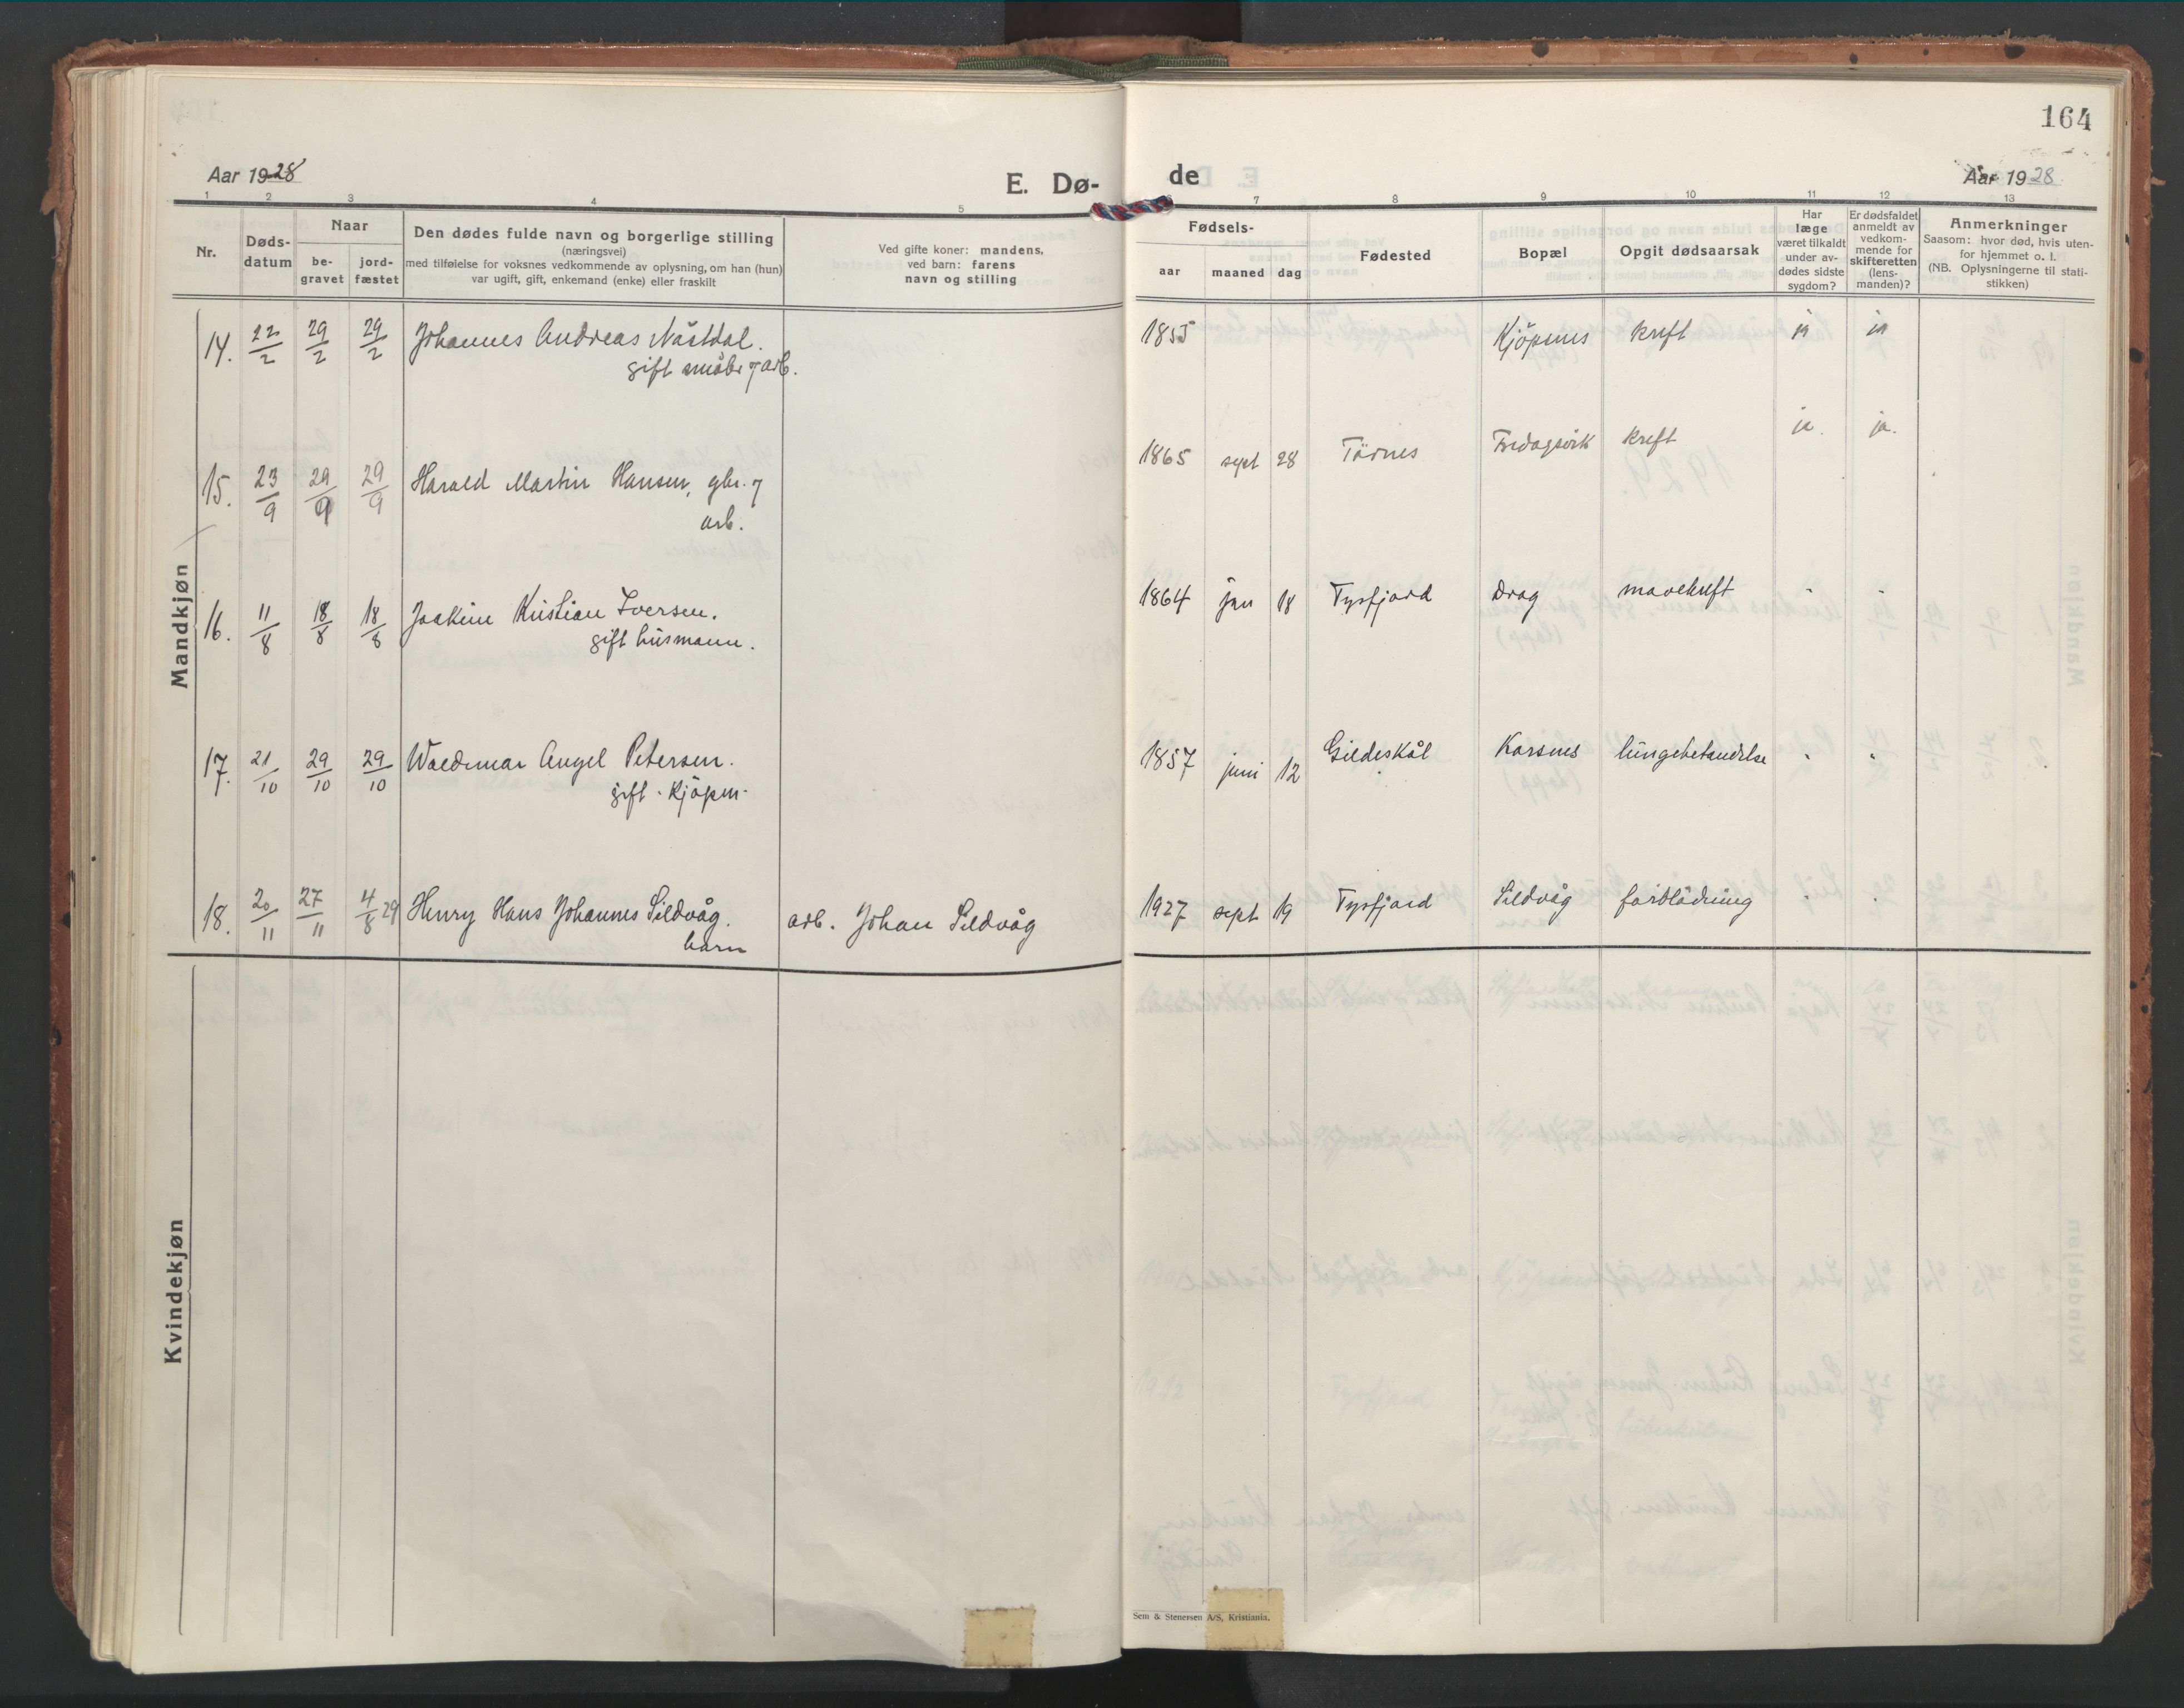 164
Aar 1928
E. Dø-
de
Aar 1928
1 2 3 4 5 7 8 9 10 11 12 13
Nr.
Døds-
datum
Naar
be-
gravet
jord-
fæstet
Den dødes fulde navn og borgerlige stilling
(næringsvei)
med tilføielse for voksnes vedkommende av oplysning, om han (hun)
var ugift, gift, enkemand (enke) eller fraskilt
Ved gifte koner: mandens,
ved barn: farens
navn og stilling
Fødsels-
aar
maaned
dag
Fødested
Bopæl
Opgit dødsaarsak
Har
læge
været tilkaldt
under av-
dødes sidste
sygdom?
Er dødsfaldet
anmeldt av
vedkom-
mende for
skifteretten
(lens-
manden)?
Anmerkninger
Saasom: hvor død, hvis uten-
for hjemmet o. l.
(NB. Oplysningerne til stati-
stikken)
Mandkjøn
14. 22/2 29/2 29/2 Johannes Andreas Nästdal. 1855 Kjöpsnes kreft ja ja
gift småbr og arb.
15. 23/9 29/9 29/9 Harald Martin Hansen, gbr. og 1865 sept 28 Tårnes Fredagsvik kreft ja. ja.
arb.
16. 11/8 18/8 18/8 Joakim Kristian Iversen. 1864 jan 18 Tysfjord Drag mavekreft " "
gift husmann.
17. 21/10 29/10 29/10 Waldemar Angel Petersen. 1857 juni 12 Gildeskål Korsnes lungebetændelse " "
gift. Kjöpm.
18. 20/11 27/11 4/8 29 Henry Hans Johannes Sildvåg. arb. Johan Sildvåg 1927 sept 19 Tysfjord Sildvåg forblödning " "
barn
Kvindekjøn
Sem & Stenersen A/S, Kristiania.